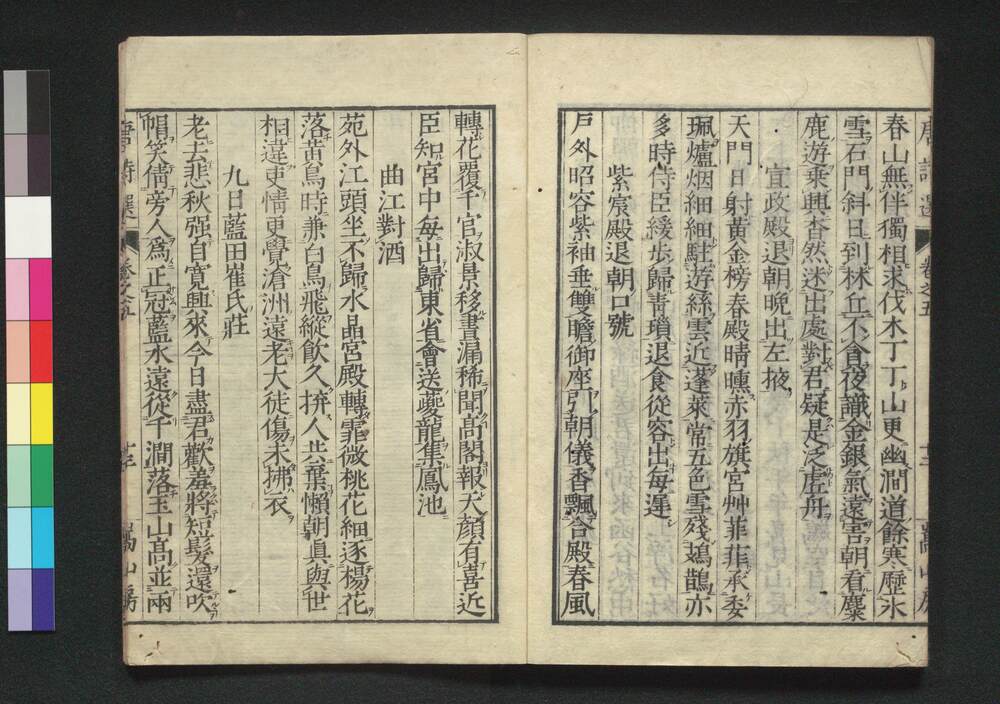 唐詩選 卷之五 嵩山房
春山無伴獨相求伐木丁丁山更幽澗道餘寒歷氷
雪石門斜日到林丘不貪夜識金銀氣遠害朝看麋
鹿遊乗興杳然迷出處對君疑是泛虚舟
宣政殿退朝晩出左掖
天門日射黄金榜春殿晴曛赤羽旗宮艸菲菲承委
珮爐烟細細駐遊絲雲近蓬萊常五色雪殘鳷鵲亦
多時侍臣緩歩歸青瑣退食從容出毎遲
紫宸殿退朝口號
戸外昭容紫袖垂雙瞻御座引朝儀香飄合殿春風
轉花覆千官淑景移晝漏稀聞高閣報天顔有喜近
臣知宮中毎出歸東省會送夔龍集鳳池
曲江對酒
苑外江頭坐不歸水晶宮殿轉霏微桃花細逐楊花
落黄鳥時兼白鳥飛縱飲久拚人共棄懶朝眞與世
相違吏情更覺滄洲遠老大徒傷未拂衣
九日藍田崔氏莊
老去悲秋强自寛興來今日盡君歡羞將短髮還吹
帽笑倩旁人爲正冠藍水遠從千澗落玉山高並兩
唐詩選 卷之五 嵩山房